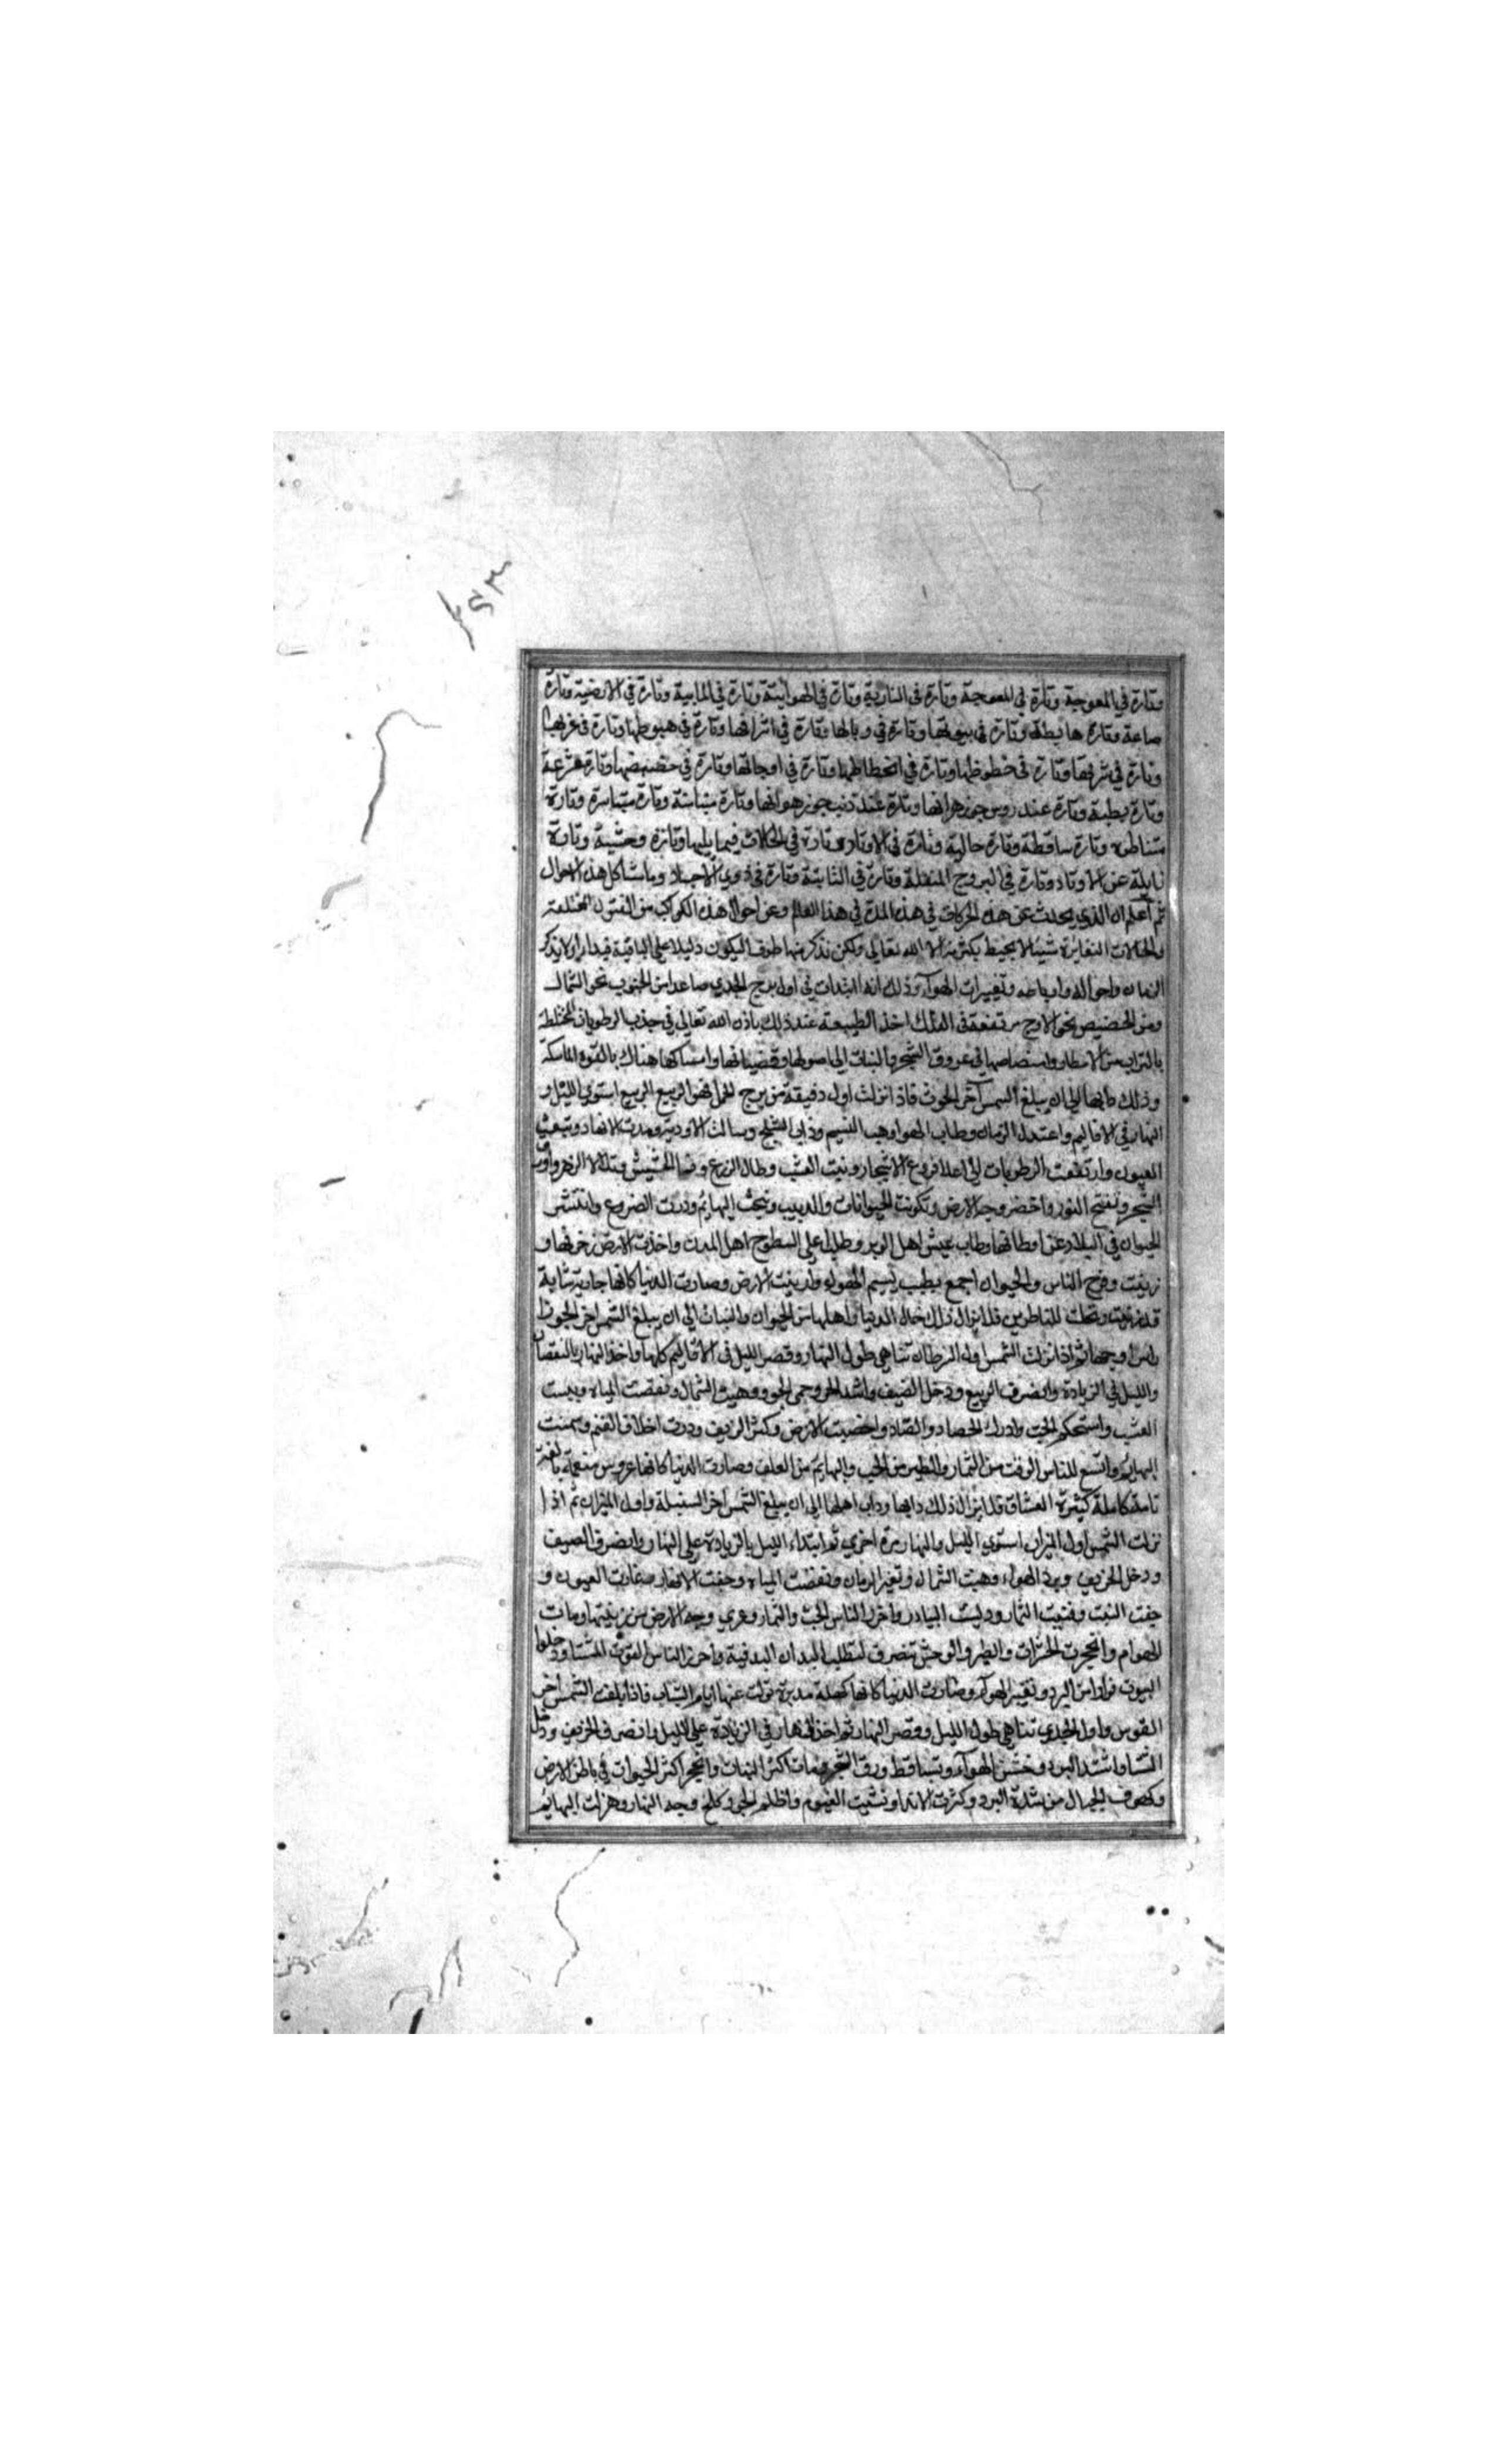 ٣٥٢
وتارة في المعوجية وتارة في المعوجة وتارة في النارية وتارة في الهوائية وتارة في المائية وتارة في الارضية وتارة
صاعدة وتارة هابطة وتارة في بيوتها وتارة في وبالها وتارة في اشرافها وتارة في هبوطها وتارة في غربها
وتارة في شرفها وتارة في حظوظها وتارة في انحطاطها وتارة في اوجاتها وتارة في حضيضها وتارة مسرعة
وتارة بطية وتارة عند روس جوزهراتها وتارة عند ذنب جوزهراتها وتارة متيامنة وتارة متياسرة وتارة
متناظرة وتارة ساقطة وتارة خالية وتارة في الاوتاد وتارة في فيما يليها وتارة وحشية وتارة
زايلة عن الاوتاد وتارة في البروج المنقلبة وتارة في الثابتة وتارة في ذوي الاجساد وما شاكل هذه الاحوال
ثم اعلم ان الذي يحدث عن هذه الحركات في هذه المدة في هذا العالم وعن احوال هذه الكواكب من الفنون المختلفة
والحالات المتغايرة شيئا لا يحيط بكثرته الا الله تعالى ولكن نذكر منها طرفا ليكون دليلا على الباقية
الزمان واحواله وتغييرات الهوآء وذلك انه ابتدات في اول برج الجدي صاعدا من الجنوب نحو الشمال
ومن الحضيض نحو الاوج مرتفعة في الفلك اخذ الطبيعة عند ذلك باذن الله تعالى في جذب الرطوبات المختلطة
بالتراب من الامطار وامتصاصها في عروق الشجر والنبات الى اصولها وقضبانها وامساكها هناك بالقوة الماسكة
وذلك دابها الى ان يبلغ الشمس آخر الحوت فاذا نزلت اول دقيقة من برج الحمل فهو الربيع الربيع استوى الليل و
النهار في الاقاليم واعتدل الزمان وطاب الهوا وهب النسيم وذاب الثلج وسالت الاودية ومدت الانهار ونبعت
العيون وارتفعت الرطوبات الى اعلا فروع الاشجار ونبت العشب وطال الزرع ونما الحشيش وتلالا الزهر واورق
الشجر وتفتح النور واخضر وجه الارض وتكونت الحيوانات والدبيب ونتجت البهائم ودرت الضروع وانتشر
الحيوان في البلاد عن اوطانها وطاب عيش اهل الوبر وطلب على السطوح اهل المدن واخذت الارض زخرفها و
زينت وفرح الناس والحيوان اجمع بطيب نسيم الهواء وازينت الارض وصارت الدنيا كانها جارية شابة
قد تزينت وتجلت للناظرين فلا يزال ذلك حال الدنيا واهلها من الحيوان والنبات الى ان يبلغ الشمس اخر الجوزا
راس اوجها ثم اذا نزلت الشمس اول السرطان تناهى طول النهار وقصر الليل في الاقاليم كلها واخذ النهار بالنقصان
والليل في الزيادة وانصرف الربيع ودخل الصيف واشتد الحر وحمي الجو وهبت الشمال ونقصت المياه ويبست
العشب واستحكم الحب وادرك الحصاد والثمار واخصبت الارض وكثر الريف ودرت اخلاف الغنم وسمنت
البهائم واتسع للناس القوت من الثمار والطير من الحب والبهايم من العلف وصارت الدنيا كانها عروس منعمة بالغة
تامة كاملة كثيرة العشاق فلا يزال ذلك دابها وداب اهلها الى ان يبلغ الشمس اخر السنبلة واول الميزان ثم اذا
نزلت الشمس اول الميزان استوى الليل والنهار مرة اخرى ثم ابتداء الليل بالزيادة على النهار وانصرف الصيف
ودخل الخريف وبرد الهواء وهبت الشمال وتغير الزمان ونقصت المياه وجفت الانهار وغارت العيون و
جفت النبت وفنيت الثمار وديست البيادر واحرز الناس الحب والثمار وعري وجه الارض من زينتها ومات
الهوام وانجحرت الحشرات والطير والوحش تنصرف لتطلب البلدان الدفية واحرز الناس القوت للشتا ودخلوا
البيوت من البرد وتغير الهوآء وصارت الدنيا كانها كهلة مدبرة تولت عنها ايام الشباب فاذا بلغت الشمس اخر
القوس واول الجدي تناهى طول الليل وقصر النهار ثم اخذ النهار في الزيادة على الليل وانصرف الخريف ودخل
الشتا واشتد البرد وخشن الهوآء وتساقط ورق الشجر ومات اكثر النبات وانجحر اكثر الحيوان في باطن الارض
وكهوف الجبال من شدة البرد وكثرت الاندا ونشيت الغيوم واظلم الجو وكلح وجه النهار وهزلت البهائم